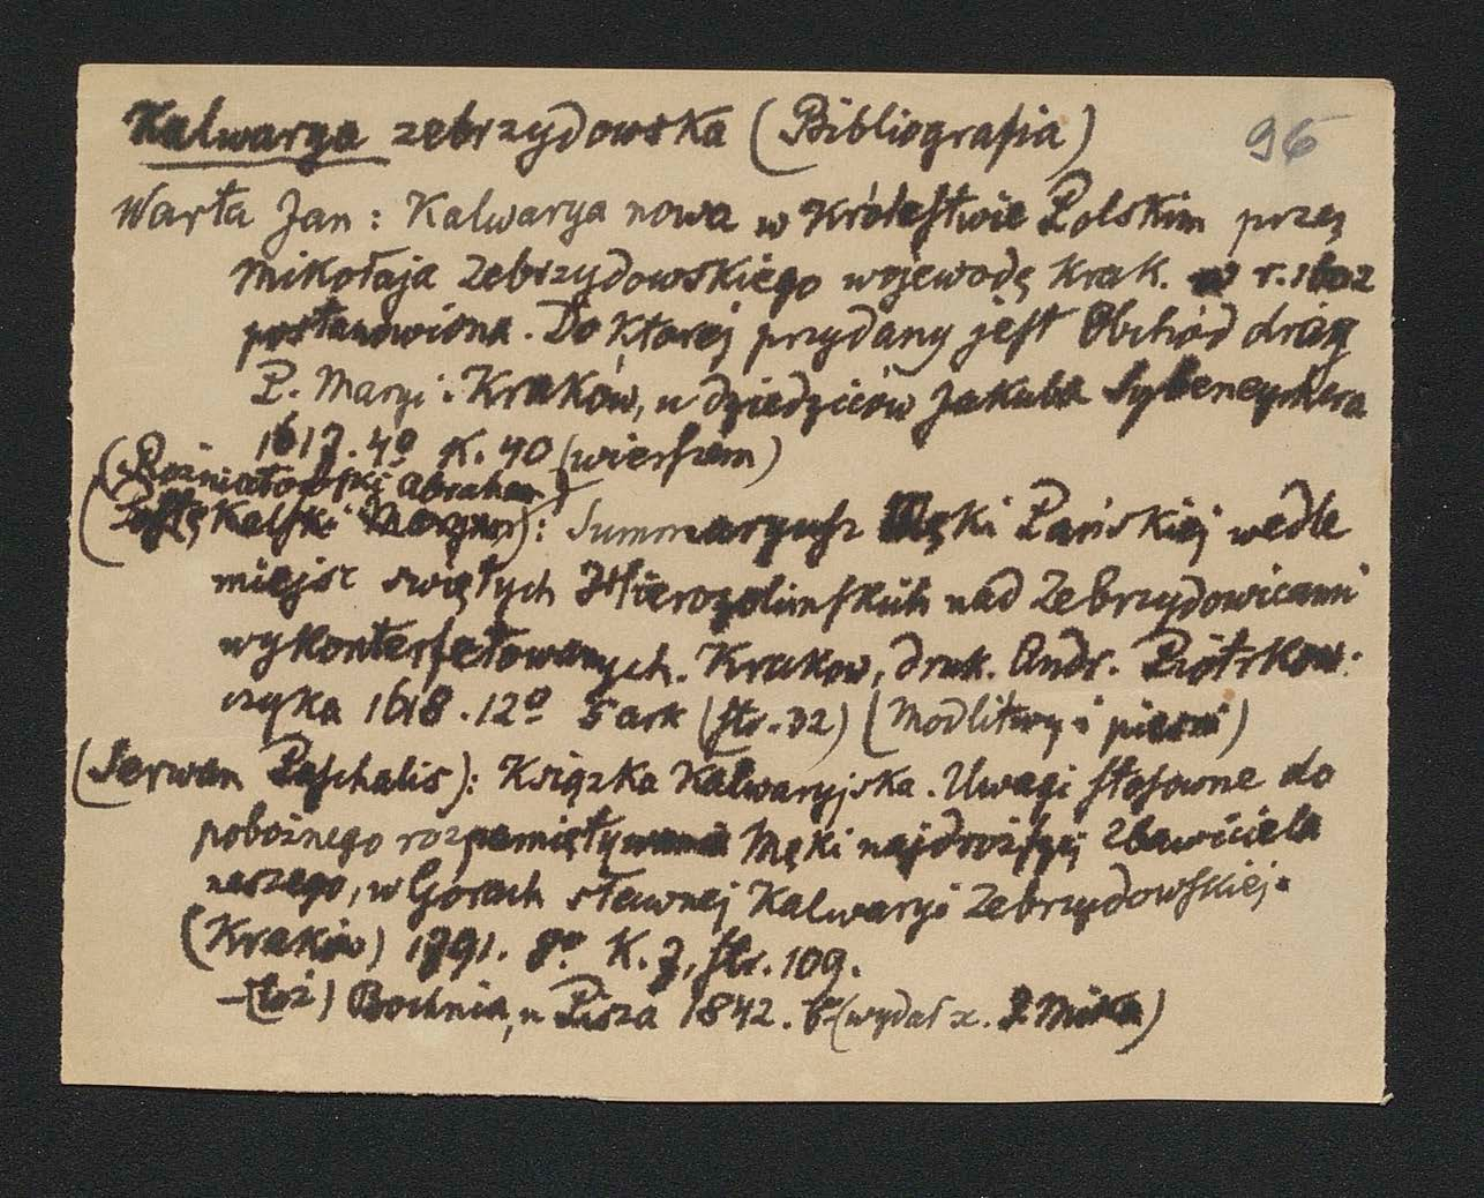 Kalwarya zebrzydowska (Bibliografia)
96
Warta Jan: Kalwarya nowa w Królestwie Polskim przez
Mikołaja Zebrzydowskiego wojewodę Krak. w r. 1602
postanowiona. Do Ktorej przydany jest Obchód dróg
P. Maryi. Kraków, u dziedziców Jakuba Sybeneychera
1617. 4º K. 40 (wierszem)
(Rożniatowski Abraham)
(Postękalski Marcyan): Summaryusz Męki Pańskiej wedle
miejsc świętych Hierozolimskich nad Zebrzydowicami
wykonterfetowanych. Krakow, druk. Andr. Piotrkow-
czyka 1618. 12º 5 ark (str. 32) (Modlitwy i pieśni)
(Serwan Paschalis): Książka Kalwaryjska. Uwagi stosowne do
pobożnego rozpamiętywania Męki najdroższej Zbawiciela
naszego, w Górach sławnej Kalwaryi Zebrzydowskiej.
(Kraków) 1791. 8º K. 7, str. 109.
– (toż) Bochnia, u Pisza 1842. (wydał x.